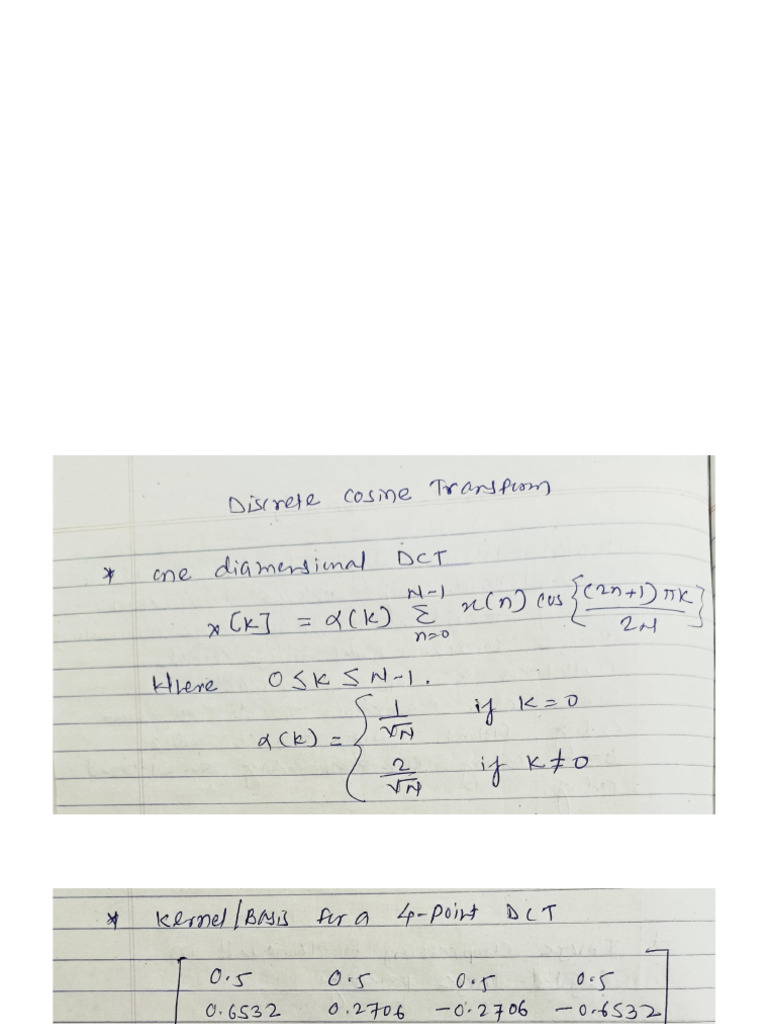 Discrete cosine Transfrom
* one diamensional DCT
x[k] = α(k) Σ_{n=0}^{N-1} x(n) cos{(2n+1)πk / 2N}
Here 0 ≤ k ≤ N-1.
α(k) = { 1/√N if k = 0
2/√N if k ≠ 0
* Kernel/Basis for a 4-point DCT
0.5 0.5 0.5 0.5
0.6532 0.2706 -0.2706 -0.6532